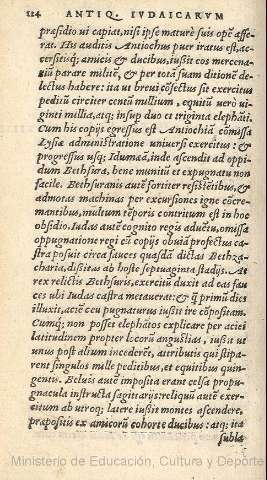 124 ANTIQ. IVDAICARVM
præsidio ui capiat, nisi ipse maturè suis opẽ affe-
rat. His auditis Antiochus puer iratus est, ac-
cersitisq́; amicis & ducibus, iussit eos mercena-
riũ parare militẽ, & per totã suam ditionẽ de-
lectus habere: ita ut breui cõfectus sit exercitus
peditũ circiter centũ millium, equitũ verò ui-
ginti millia, atq; insup duo et triginta elephãti.
Cum his copijs egressus est Antiochiã cõmissa
Lysiæ administratione uniuersi exercitus: &
progressus usq; Idumæã, inde ascendit ad oppi-
dum Bethsura, bene munitũ et expugnatu non
facile. Bethsuranis autẽ fortiter resistẽtibus, &
admotas machinas per excursiones igne cõcre-
mantibus, multum tẽporis contritum est in hoc
obsidio. Iudas autẽ cognito regis aduẽtu, omissa
oppugnatione regi cũ copijs obuiã profectus ca-
stra posuit circa fauces quasdã dictas Bethza-
charia, dissitas ab hoste septuaginta stadijs. At
rex relictis Bethsuris, exercitũ duxit ad eas fau
ces ubi Iudas castra metauerat: & q̃ primũ dies
illuxit, aciẽ ceu pugnaturus iussit ire cõpositam.
Cumq́; non posset elephãtos explicare per aciei
latitudinem propter locorũ angustias, iussit ut
unus post alium incederẽt, attributis qui stipa-
rent singulos mille peditibus, et equitibus quin-
gentis. Beluis autẽ imposita erant celsa propu-
gnacula instructa sagittarijs: reliquũ autẽ exer-
citum ab utroq; latere iussit montes ascendere,
præpositis ex amicorũ cohorte ducibus: atq; ita
subla
Ministerio de Educación, Cultura y Deporte